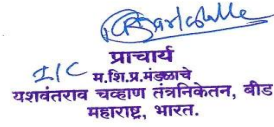 प्राचार्य
I/C
म.शि.प्र.मंडळाचे
यशवंतराव चव्हाण तंत्रनिकेतन, बीड
महाराष्ट्र, भारत.